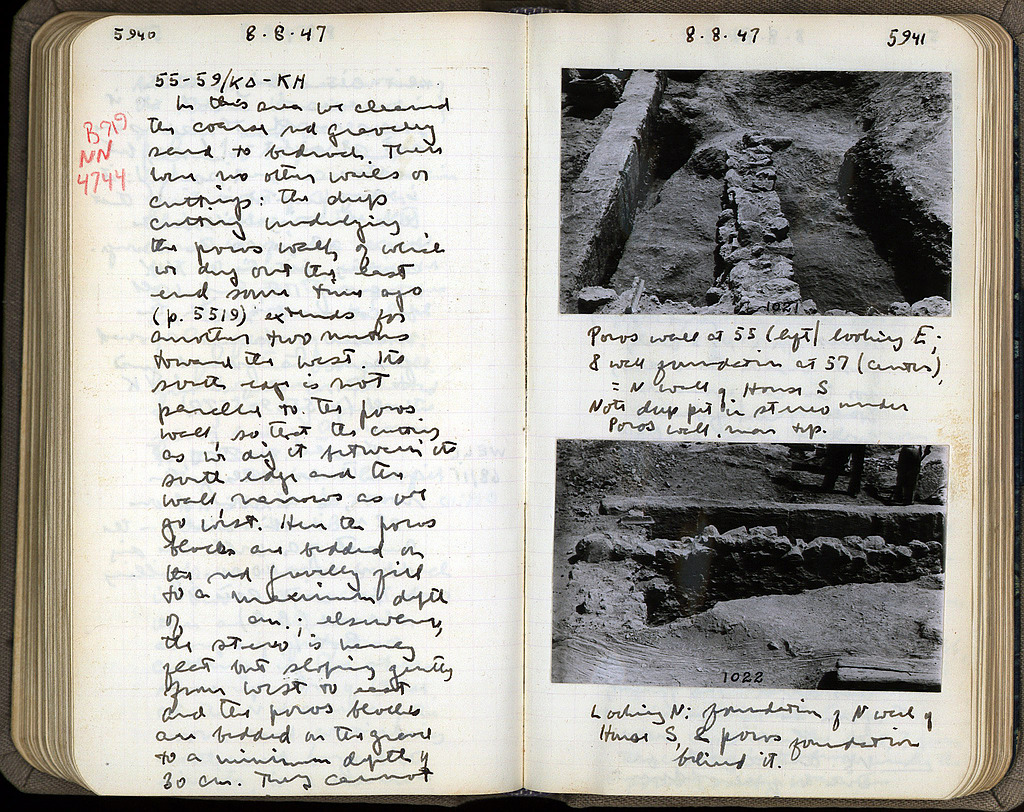 5940
8·8·47
55-59/ΚΔ-ΚΗ
In this area we cleaned
the coarse red gravelly
sand to bedrock. There
were no other walls or
cuttings: the deep
cutting underlying
the poros wall, of which
we dug out the east
end some time ago
(p. 5519) extends for
another two metres
toward the west. Its
south edge is not
parallel to the poros
wall, so that the cutting
as we dig it between its
south edge and the
wall narrows as we
go west. Here the poros
blocks are bedded on
the red gravelly fill
to a maximum depth
of cm.; elsewhere,
the stereo is nearly
flat but sloping gently
from west to east
and the poros blocks
are bedded on the gravel
to a minimum depth of
30 cm. They cannot
NN
4744
8·8·47
5941
1021
Poros wall at 55 (left) looking E;
& wall foundation at 57 (center),
= N wall of House S
Note deep pit in stereo under
Poros wall, near top.
1022
Looking N: foundation of N wall of
House S, & poros foundation
behind it.